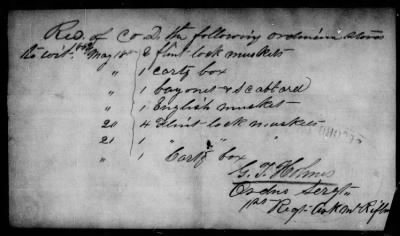 Recd of Co D. the following ordenance stores
to wit. May 18 2 flint lock muskets
" 1 cartg box
" 1 bayonet & scabbard
" 1 English musket
20 4 flint lock muskets
21 1 " " "
" 1 Cartg box
G. T. Holmes
Ordnc Sergt
1st Regt Ark Mt Rifles